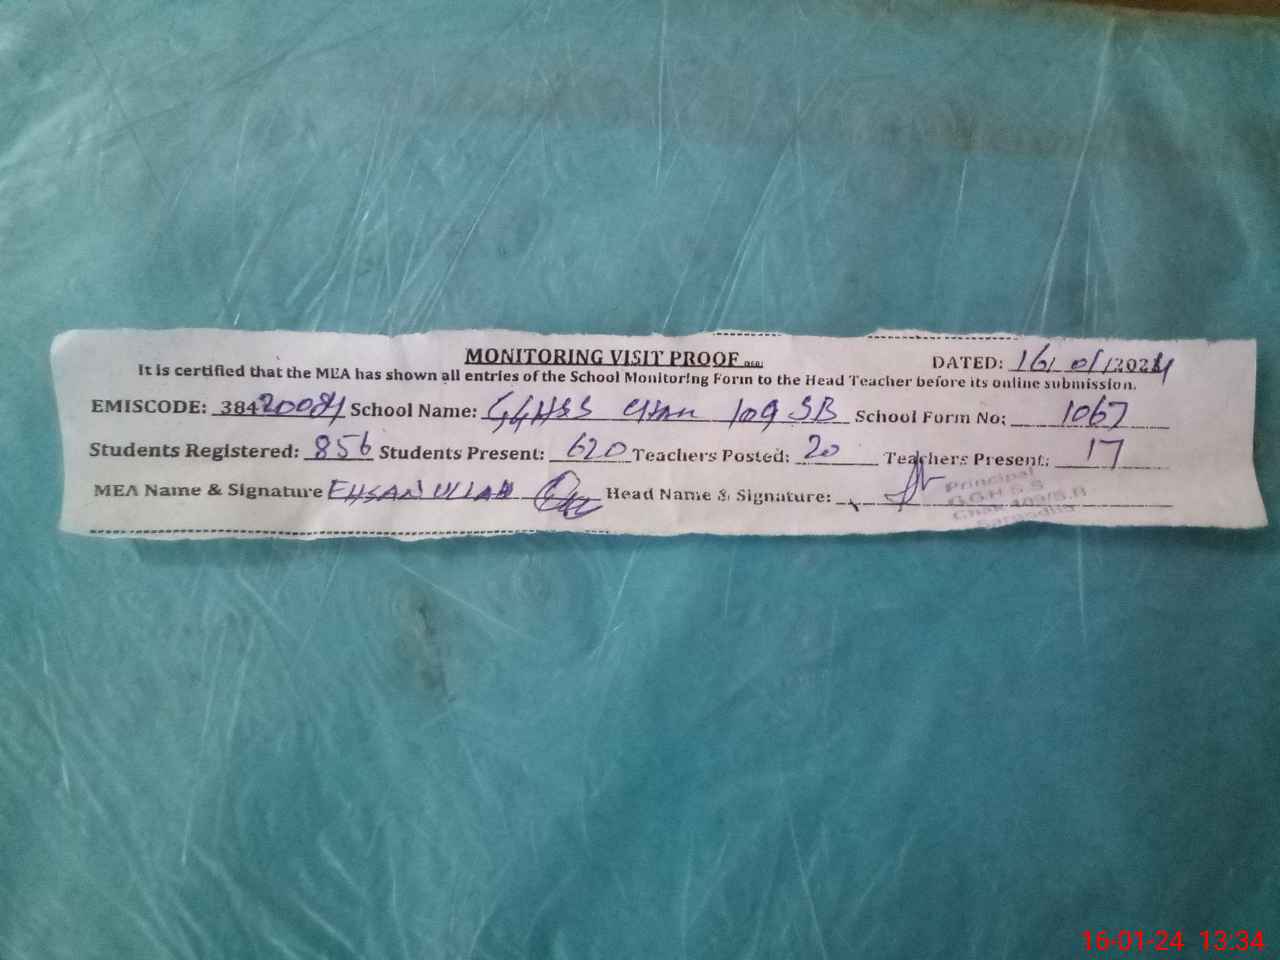 MONITORING VISIT PROOF
DATED: 16/01/2024
It is certified that the MEA has shown all entries of the School Monitoring Form to the Head Teacher before its online submission.
EMISCODE: 38420084 School Name: GGHSS Chak 109 SB School Form No: 1067
Students Registered: 856 Students Present: 620 Teachers Posted: 20 Teachers Present: 17
MEA Name & Signature EHSAN ULLAH Head Name & Signature:
Principal
G.G.H.S.S
Chak 109/S.B
Sargodha
16-01-24 13:34